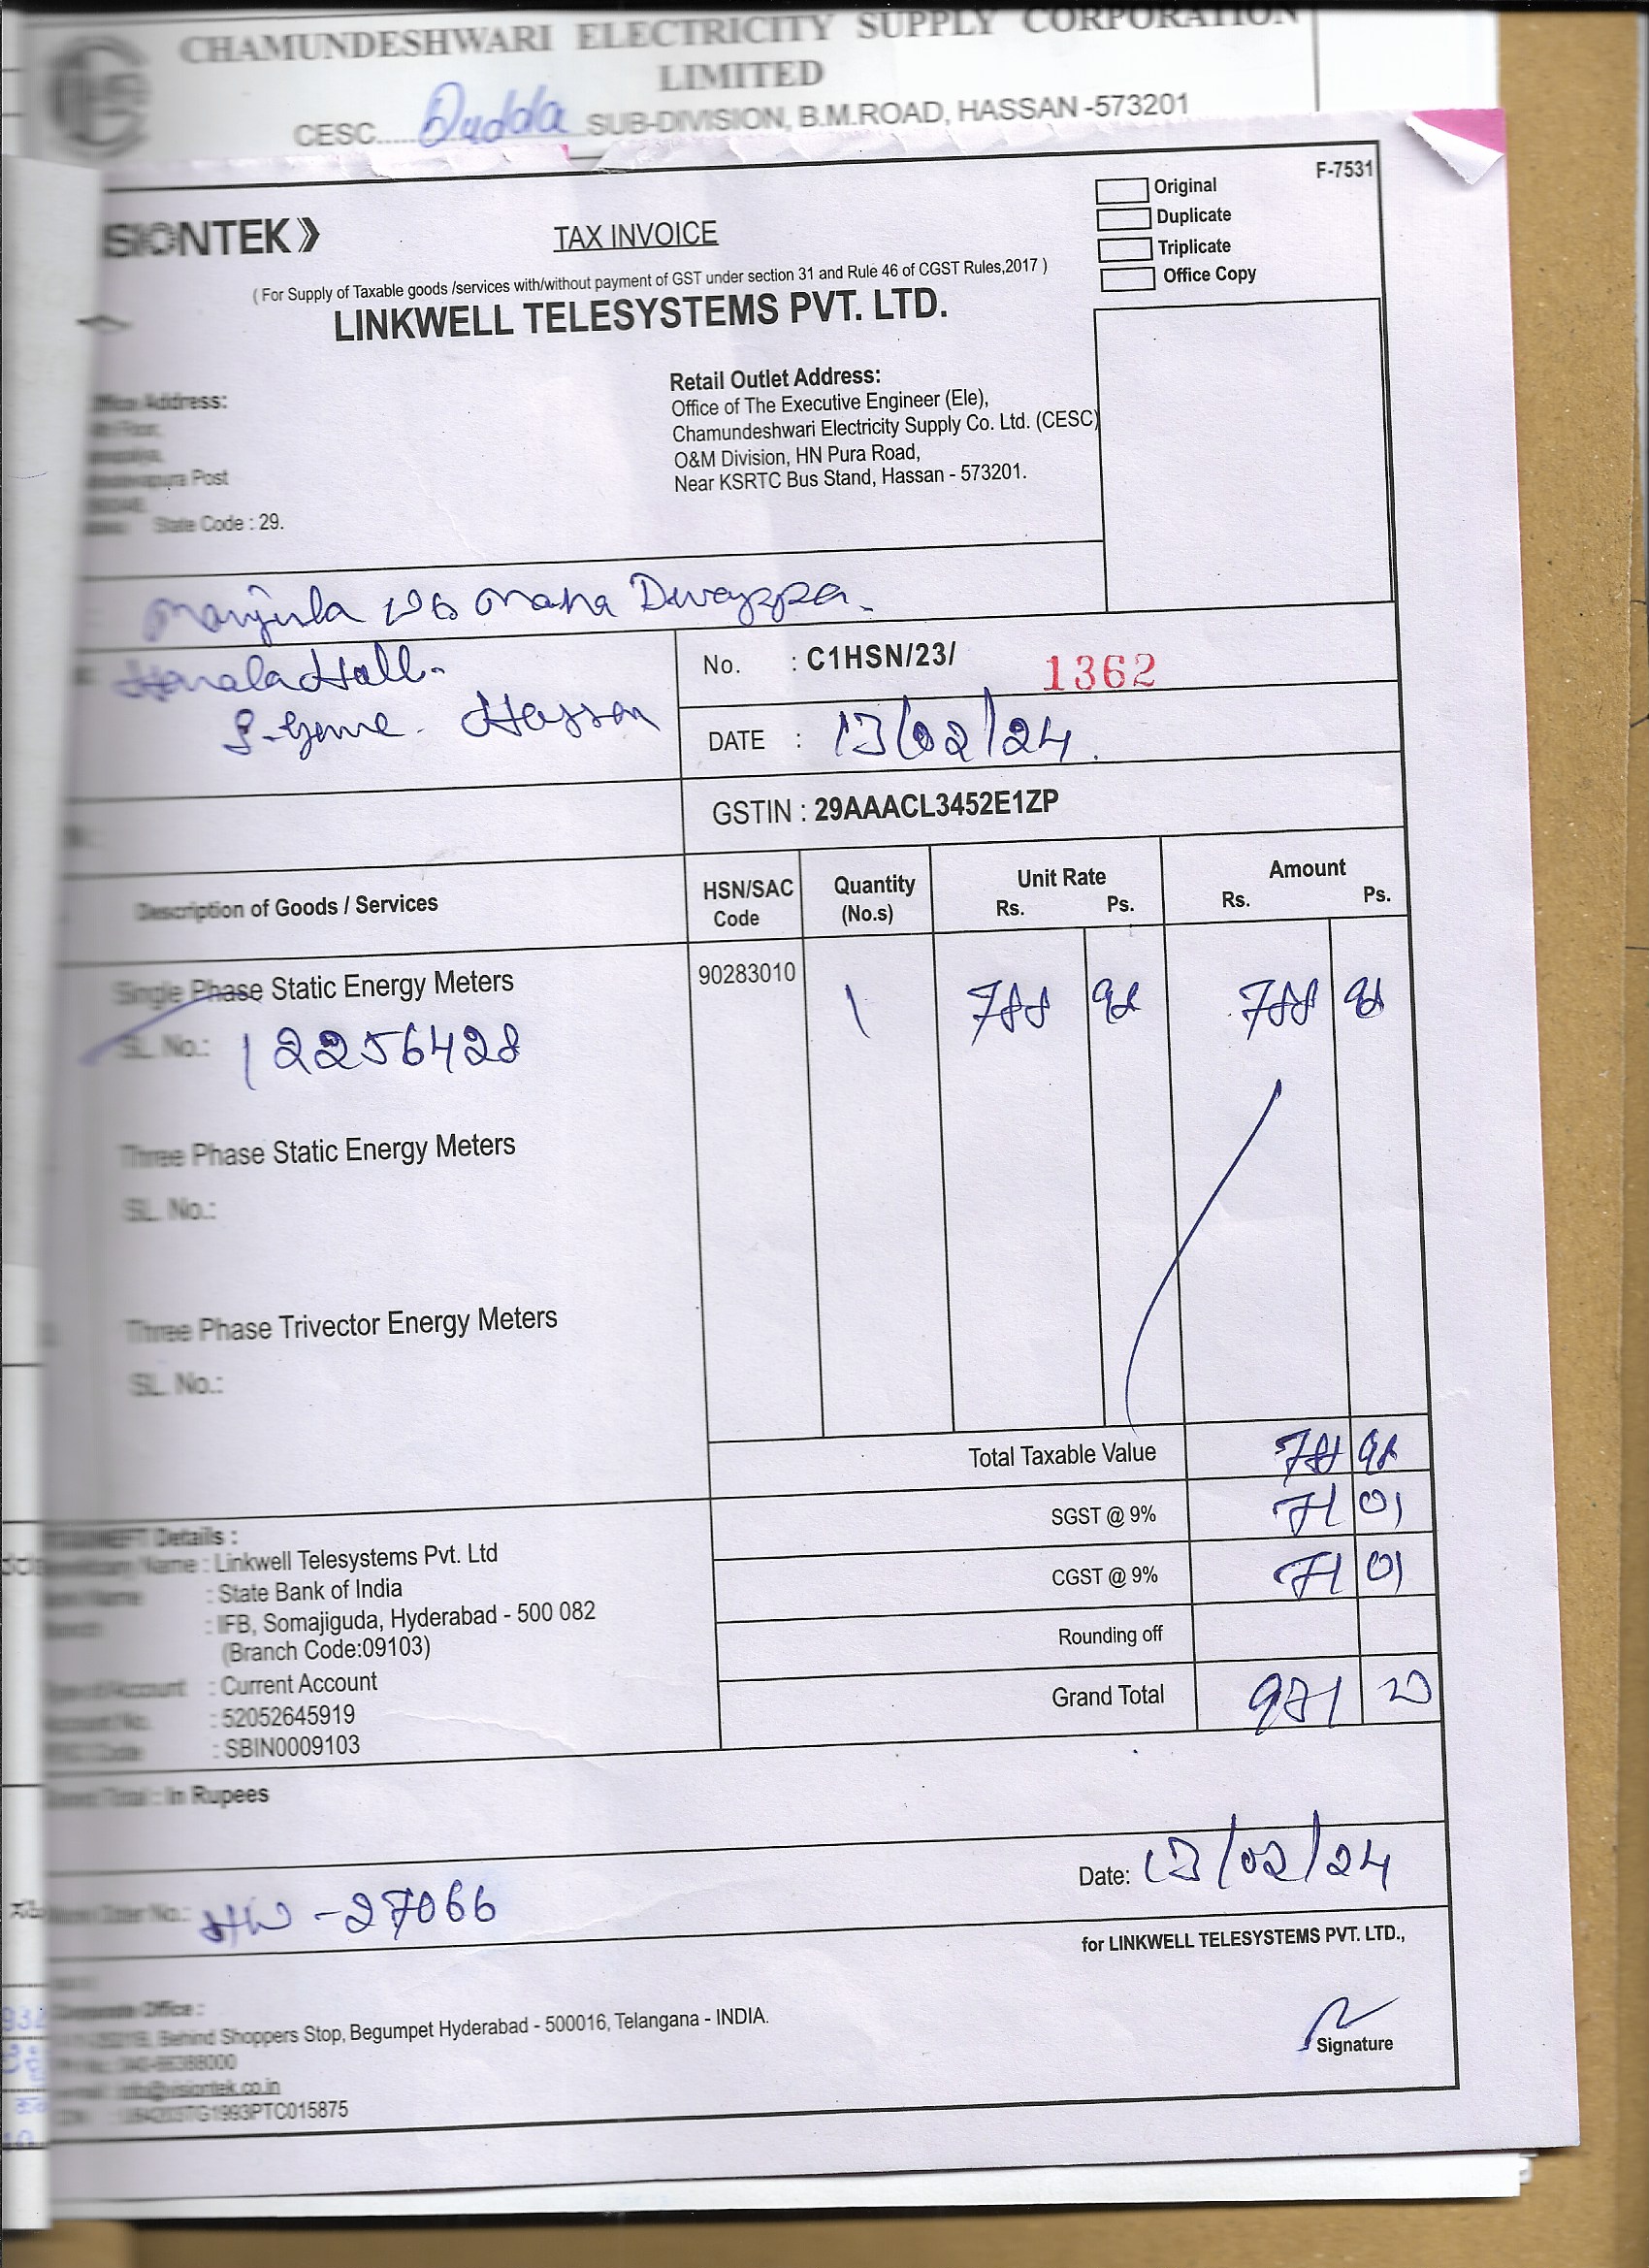 CHAMUNDESHWARI ELECTRICITY SUPPLY CORPORATION
LIMITED
CESC..... Dudda SUB-DIVISION, B.M.ROAD, HASSAN -573201
F-7531
Original
Duplicate
Triplicate
Office Copy
SIONTEK
TAX INVOICE
( For Supply of Taxable goods /services with/without payment of GST under section 31 and Rule 46 of CGST Rules,2017 )
LINKWELL TELESYSTEMS PVT. LTD.
Address:
Floor,
Post
State Code : 29.
Retail Outlet Address:
Office of The Executive Engineer (Ele),
Chamundeshwari Electricity Supply Co. Ltd. (CESC)
O&M Division, HN Pura Road,
Near KSRTC Bus Stand, Hassan - 573201.
Manjula
Hassan
No. : C1HSN/23/ 1362
DATE : 13/02/24
GSTIN : 29AAACL3452E1ZP
Description of Goods / Services HSN/SAC Code Quantity (No.s) Unit Rate Rs. Ps. Amount Rs. Ps.
Single Phase Static Energy Meters 90283010 1 788 98 788 98
SL. No.: 12256428
Three Phase Static Energy Meters
SL. No.:
Three Phase Trivector Energy Meters
SL. No.:
Total Taxable Value 788 98
SGST @ 9% 71 01
CGST @ 9% 71 01
Rounding off
Grand Total 931
Details :
Name : Linkwell Telesystems Pvt. Ltd
Name : State Bank of India
: IFB, Somajiguda, Hyderabad - 500 082
(Branch Code:09103)
Type of Account : Current Account
Account No. : 52052645919
Code : SBIN0009103
Total : In Rupees
Date: 13/02/24
Order No.: HW -27066
for LINKWELL TELESYSTEMS PVT. LTD.,
Corporate Office :
Behind Shoppers Stop, Begumpet Hyderabad - 500016, Telangana - INDIA.
info@visiontek.co.in
TG1993PTC015875
Signature